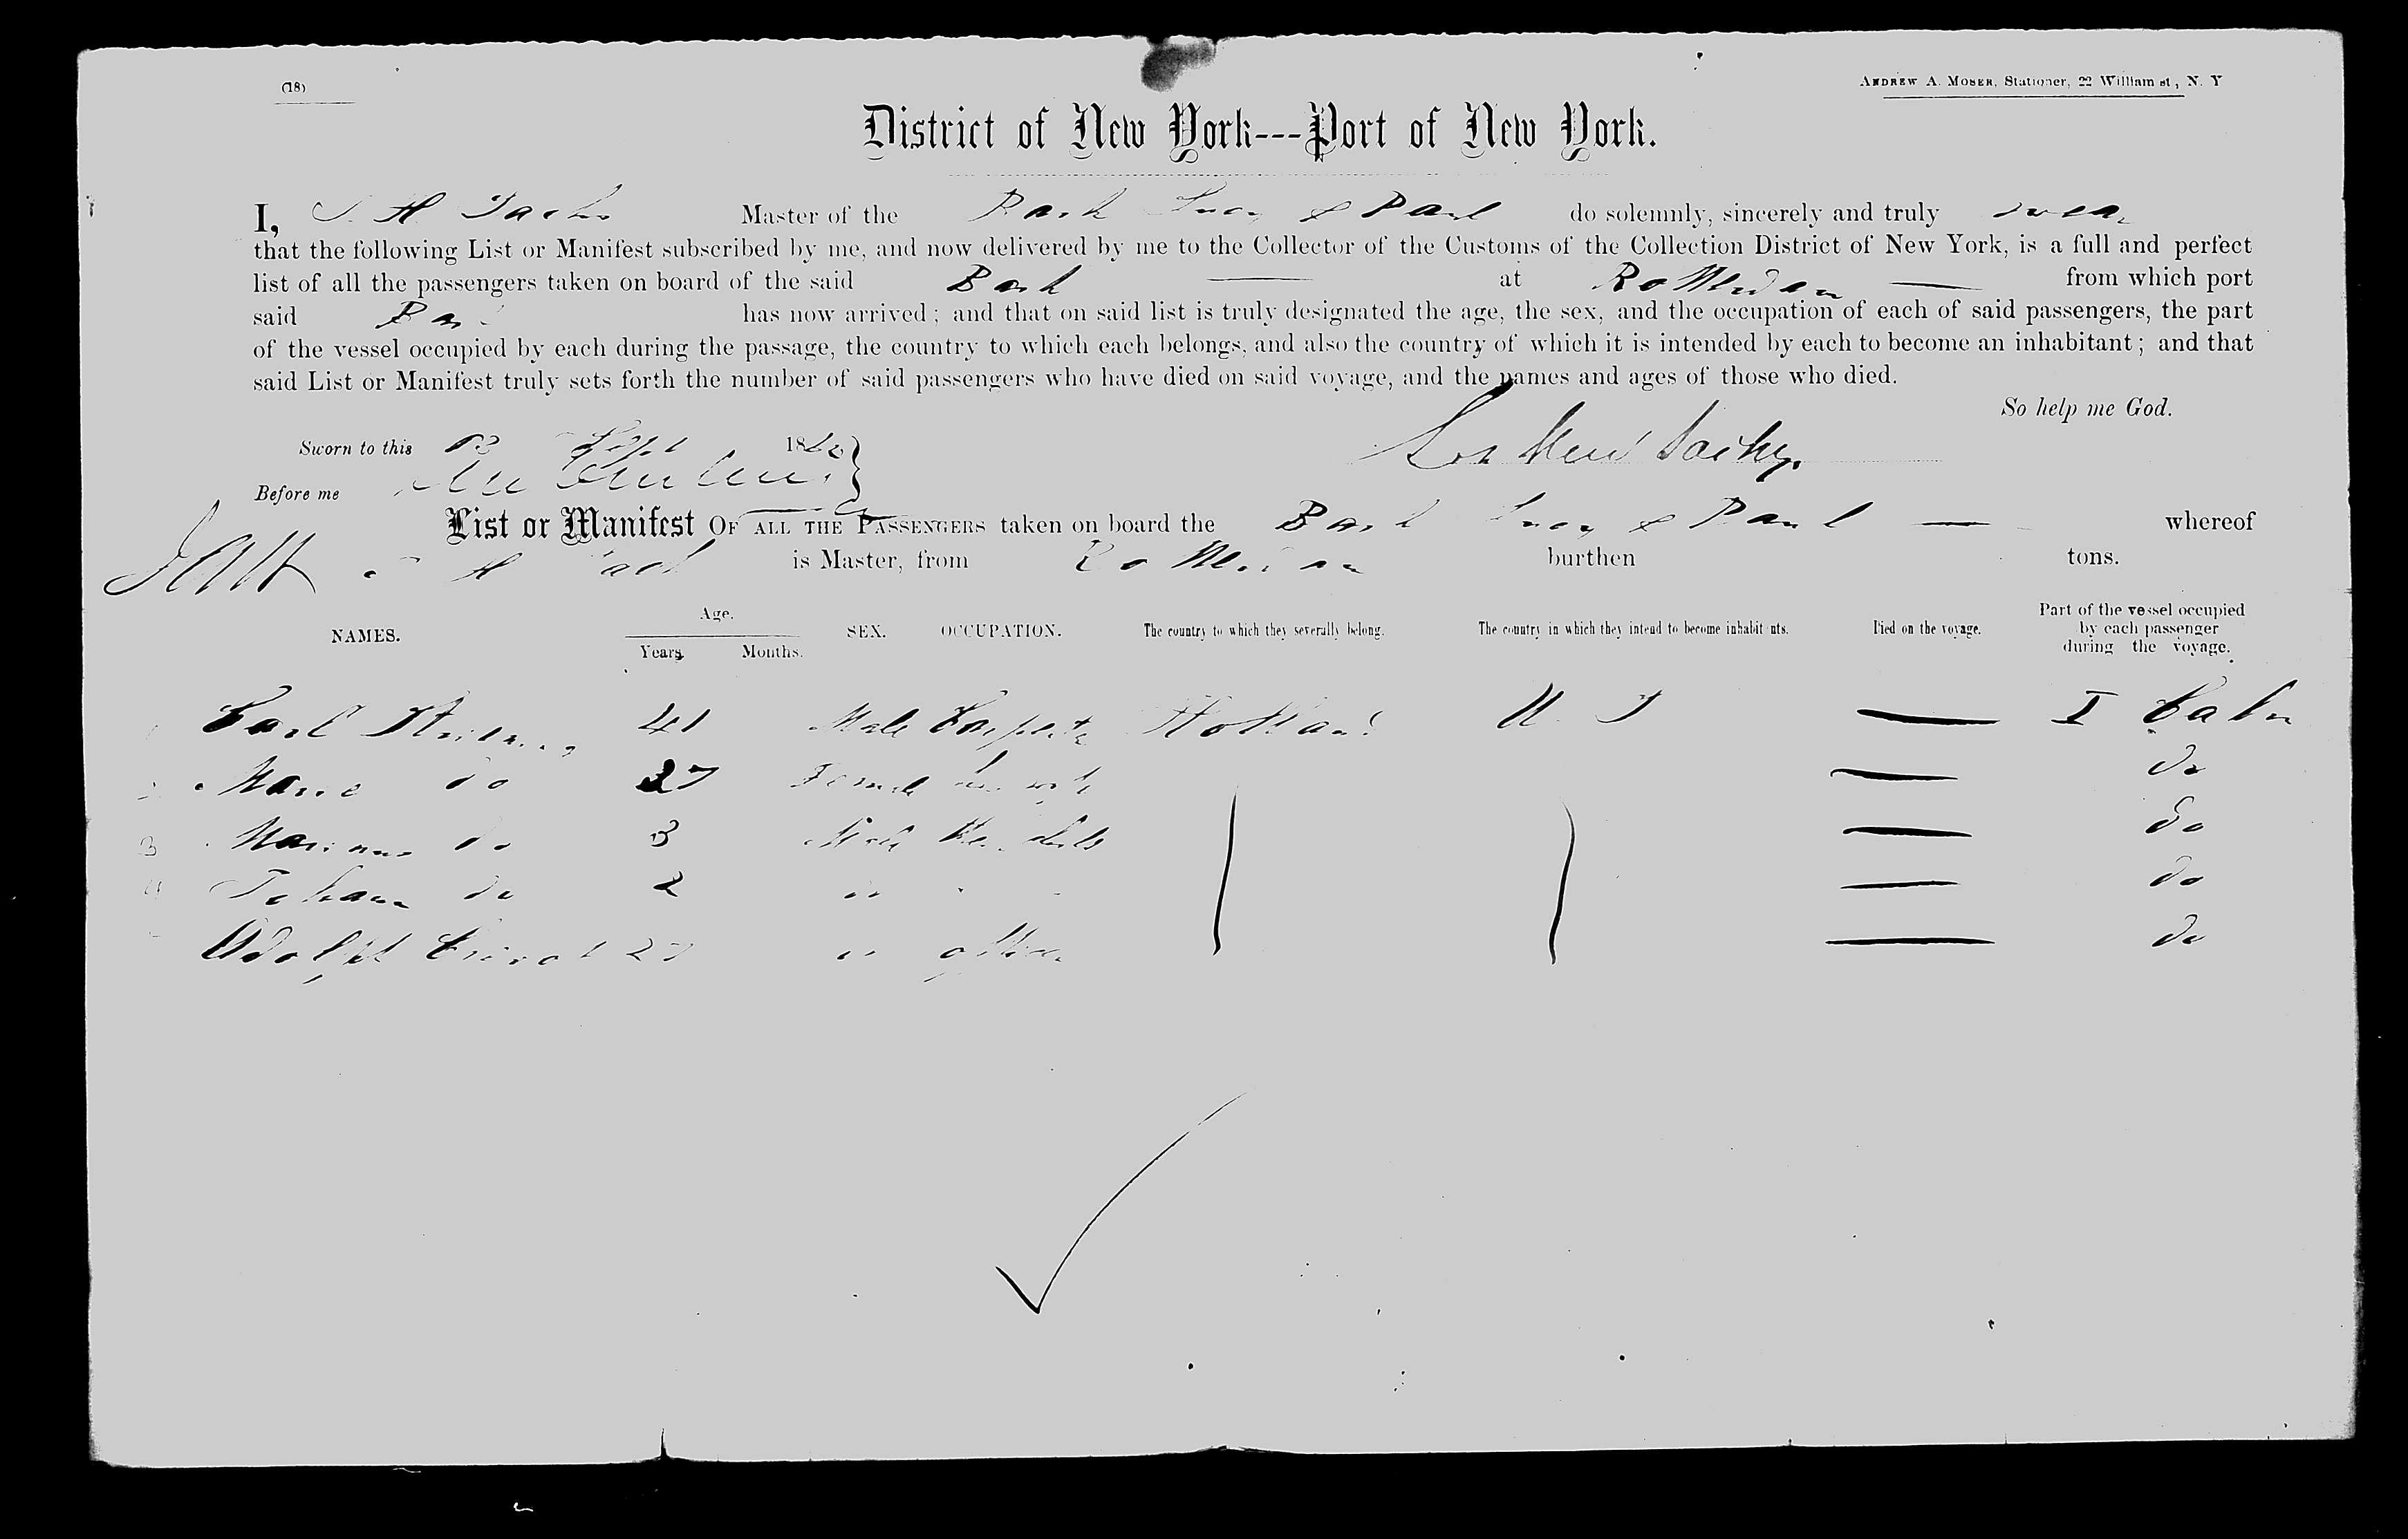 (18)
ANDREW A. MOSER, Stationer, 22 William st., N. Y
District of New York---Port of New York.
I, Master of the Bark Lucy & Paul do solemnly, sincerely and truly swear
that the following List or Manifest subscribed by me, and now delivered by me to the Collector of the Customs of the Collection District of New York, is a full and perfect
list of all the passengers taken on board of the said Bark at Rotterdam from which port
said Bark has now arrived; and that on said list is truly designated the age, the sex, and the occupation of each of said passengers, the part
of the vessel occupied by each during the passage, the country to which each belongs, and also the country of which it is intended by each to become an inhabitant; and that
said List or Manifest truly sets forth the number of said passengers who have died on said voyage, and the names and ages of those who died.
So help me God.
Sworn to this Sept 18
Before me
List or Manifest OF ALL THE PASSENGERS taken on board the Bark Lucy & Paul whereof
is Master, from Rotterdam burthen tons.
NAMES. Age. Years Months. SEX. OCCUPATION. The country to which they severally belong. The country in which they intend to become inhabitants. Died on the voyage. Part of the vessel occupied by each passenger during the voyage.
Carl 41 Male Holland U. S I Cabin
2 Marie do 27 Female his wife do
3 do 3 Male do
4 Johann do 2 " do
Adolph 27 " officer do